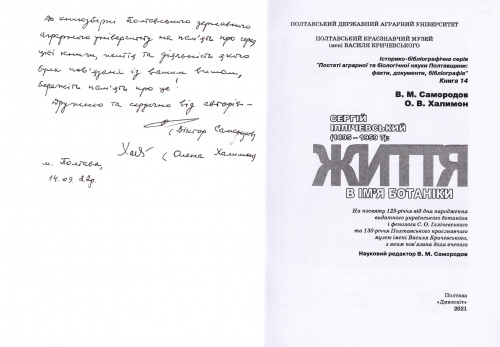 До книгозбірні Полтавського державного
аграрного університету на пам'ять про героя
цієї книги, життя та діяльність якого
була пов'язані із вашим вишом,
бережіть пам'ять про це!
Дружньо та сердечно від авторів –
(Віктор Самородов)
(Олена Халимон)
м. Полтава,
14.09.22р.
ПОЛТАВСЬКИЙ ДЕРЖАВНИЙ АГРАРНИЙ УНІВЕРСИТЕТ
ПОЛТАВСЬКИЙ КРАЄЗНАВЧИЙ МУЗЕЙ
імені ВАСИЛЯ КРИЧЕВСЬКОГО
Історико-бібліографічна серія
"Постаті аграрної та біологічної науки Полтавщини:
факти, документи, бібліографія"
Книга 14
В. М. Самородов
О. В. Халимон
СЕРГІЙ
ІЛЛІЧЕВСЬКИЙ
(1895 – 1959 ?):
ЖИТТЯ
В ІМ'Я БОТАНІКИ
На посвяту 125-річчя від дня народження
видатного українського ботаніка
і фенолога С. О. Іллічевського
та 130-річчя Полтавського краєзнавчого
музею імені Василя Кричевського,
з яким пов'язана доля вченого
Науковий редактор В. М. Самородов
Полтава
«Дивосвіт»
2021